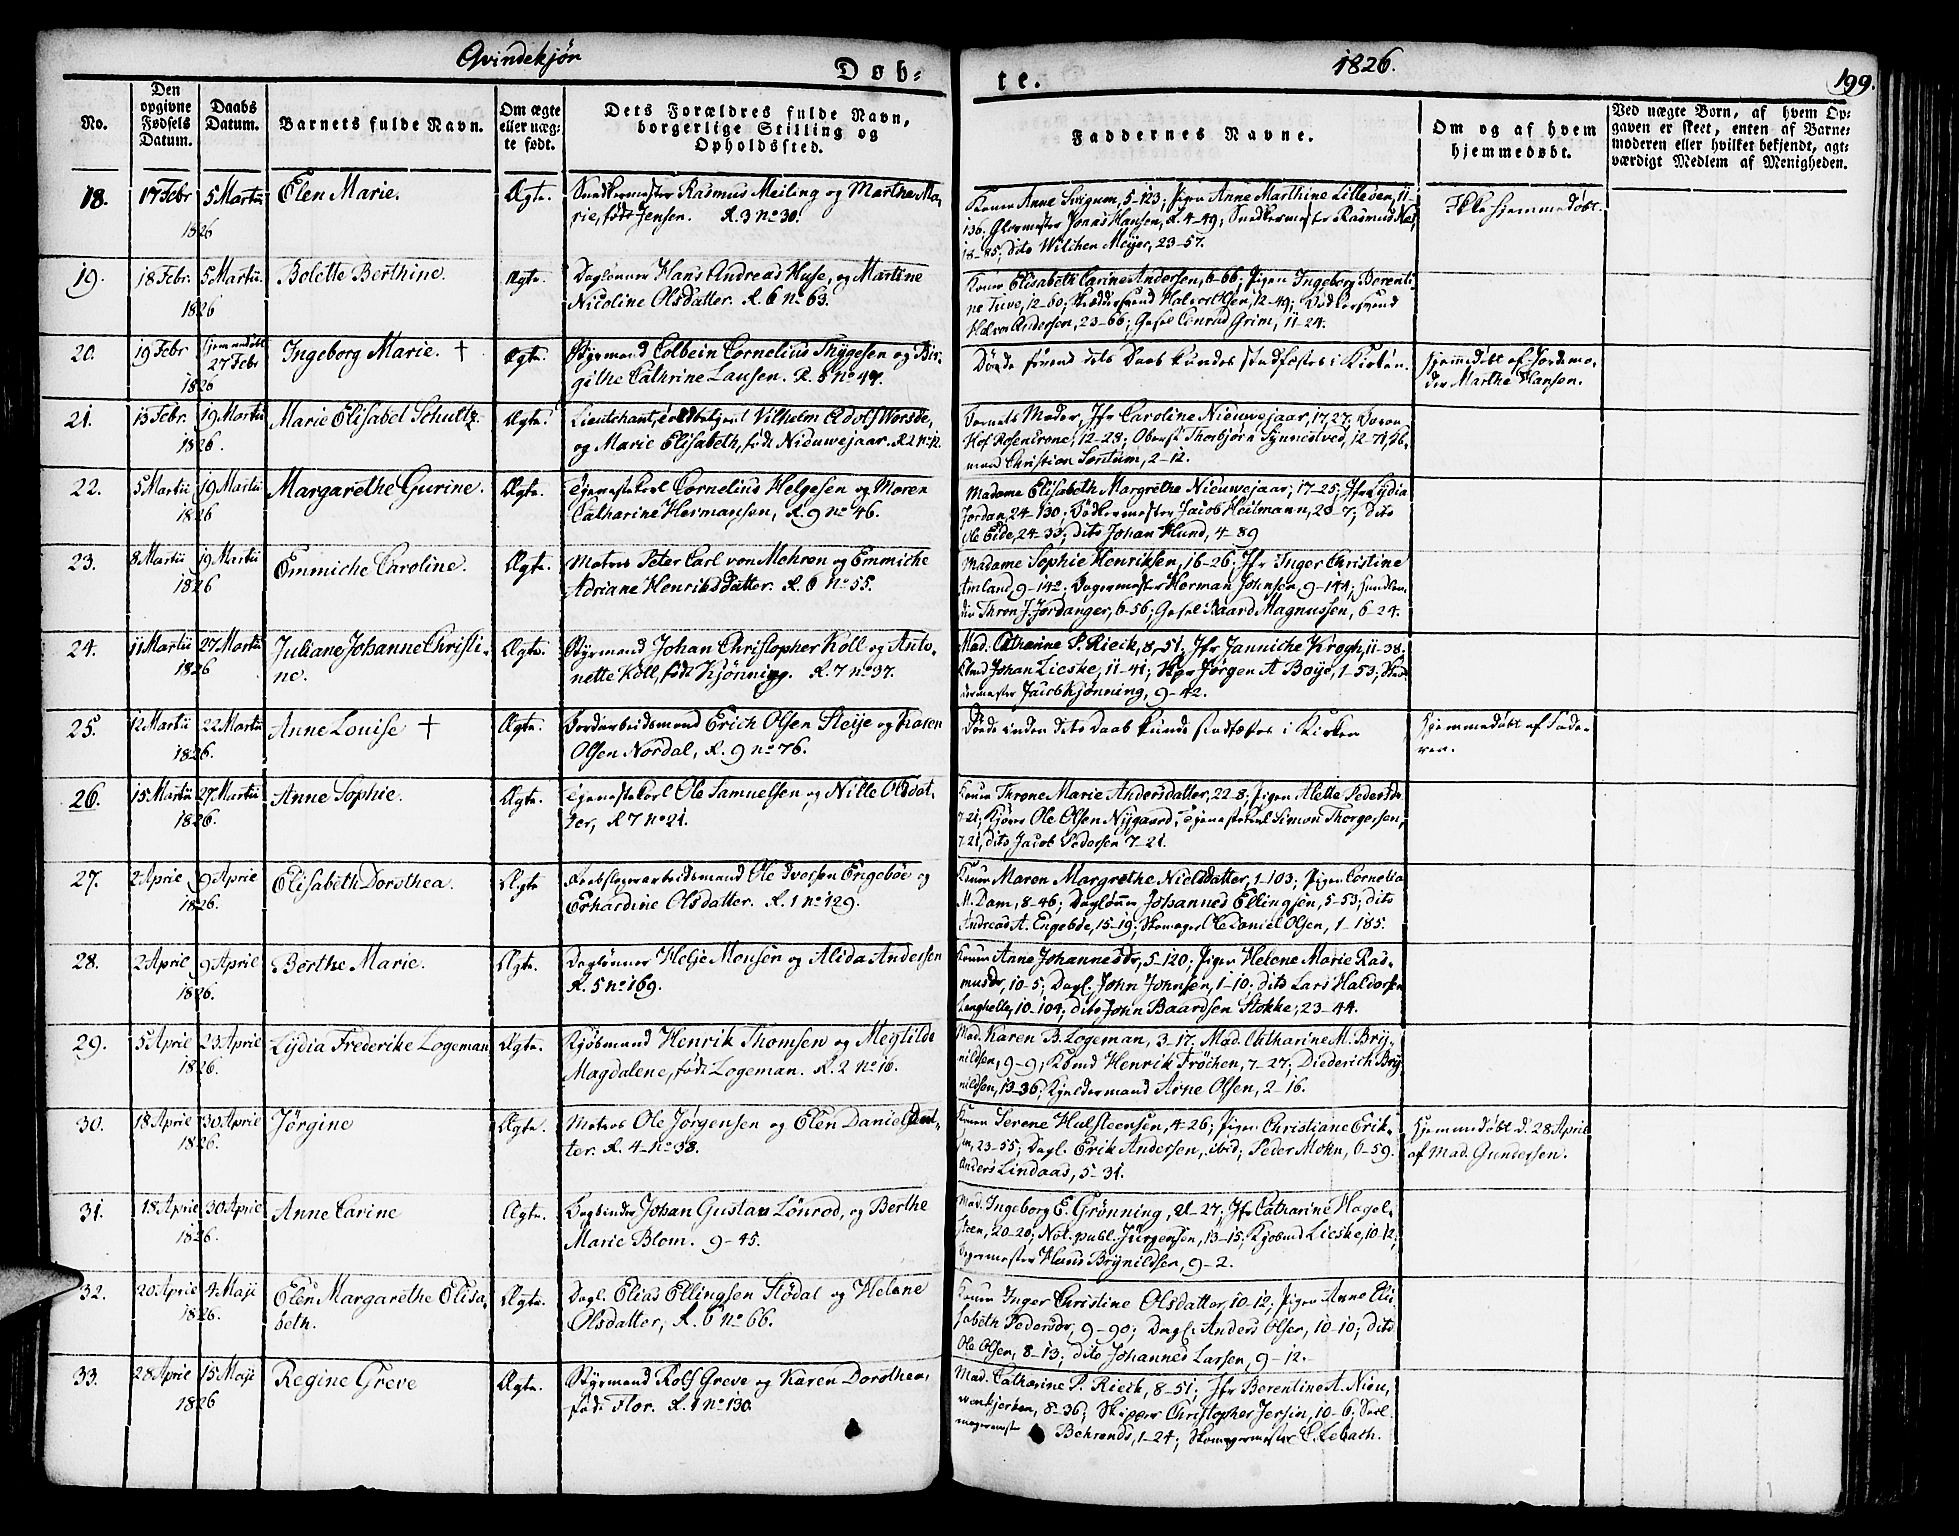 Qvindekjøn
Døb-
te.
1826.
199.
No.
Den opgivne Fødsels Datum.
Daabs Datum.
Barnets fulde Navn.
Om ægte eller uæg-te født.
Dets Forældres fulde Navn, borgerlige Stilling og Opholdssted.
Faddernes Navne.
Om og af hvem hjemmedøbt.
Ved uægte Børn, af hvem Op-gaven er skeet, enten af Barne-moderen eller hvilket bekjendt, agt-værdigt Medlem af Menigheden.
18.
17 Febr
1826
5 Martii
Elen Marie.
Ægte.
Snedkermester Rasmus Meiling og Marthe Ma-
rie, født Jensen. R. 3 No 30.
Konen Anne 5-123; Pigen Anne Marthine Lillesen, 11-
136; Glarmester Jonas Hansen, R. 4-49, Snedkermester Rasmus
18-85; dito Wilchen Meijer, 23-57.
Ikke hjemmedøbt.
19.
18 Febr.
1826
5 Martii
Bolette Berthine.
Ægte.
Daglønner Hans Andreas Huse, og Martine
Nicoline Olsdatter. R. 6 No 63.
Konen Elisabeth Carine Andersen, 6-66; Pigen Ingeborg Berenti-
ne Tuve, 12-60; Halvorsen, 12-49;
Halvor Andersen, 23-66; Gesel Conrad Grim, 11-24.
20.
19 Febr
1826
hjemmedøbt
27 Febr
Ingeborg Marie. †
Ægte.
Styrmand Colbein Cornelius Thygesen og Bir-
githe Cathrine Lausen. R. 8 No 47.
Døde førend dets Daab kunde stadfæstes i Kirken.
Hjemmedøbt af Jordemo-
der Marthe Hansen.
21.
13 Febr.
1826
19 Martii
Marie Elisabet Schultz.
Ægte.
Lieutenant, Vilhelm Adolf Worsöe,
og Marie Elisabeth, født Nieuwejaar. R. 2 No 12.
Barnets Moder, Jfr Caroline Nieuwejaar, 17, 27; Baron
Hof Rosencrone, 12-23; Oberst Thorbjørn Synnestved, 12-71;
mand Christian Sontum, 2-12.
22.
5 Martii
1826
19 Martii
Margarethe Gurine.
Ægte.
Tjenestekarl Cornelius Helgesen og Maren
Catharine Hermansen, R. 9 No 46.
Madame Elisabeth Margrethe Nieuwejaar, 17-25; Jfr Lydia
Jordan, 24-130; Bødkermester Jacob Heilmann, 20-7; dito
Ole Eide, 24-33; dito Johan Hund, 4-89
23.
8 Martii
1826
19 Martii
Emmiche Caroline.
Ægte.
Matros Peter Carl von Mehren og Emmiche
Adriane Henriksdatter. R. 6 No 55.
Madame Sophie Henriksen, 16-26; Jfr Inger Christine
Amland, 9-142; Bagermester Herman Johnsen, 9-144;
Thron J. Jordanger, 6-56; Gesel Baard Magnussen, 6-24.
24.
11 Martii
1826
27 Martii
Juliane Johanne Christi-
ne.
Ægte.
Styrmand Johan Christopher Koll og Anto-
nette Koll, født Kjønning. R. 7 No 37.
Mad. Catharine P. Rieck, 8-51; Jfr Janniche Krogh, 11-38;
Johan Lieske, 11-41; Skipr Jørgen A Boye, 1-53;
Jacob Kjønning, 9-42.
25.
12 Martii
1826.
22 Martii
Anne Louise †
Ægte.
Bordarbeidsmand Erich Olsen Steije og Karen
Olsen Nordal, R. 9 No 76.
Døde inden dets Daab kunde stadfæstes i Kirken
Hjemmedøbt af Fade-
ren.
26.
15 Martii
1826.
27 Martii
Anne Sophie.
Ægte.
Tjenestekarl Ole Samuelsen og Nille Olsdat-
ter, R. 7 No 21.
Konen Throne Marie Andersdatter, 22-8; Pigen Alette Pedersdr
7-21; Kjører Ole Olsen Nygaard; Tjenestekarl Simon Thorgersen,
7-21, dito Jacob Pedersen 7-21.
27.
2 Aprie
1826.
9 Aprie
Elisabeth Dorothea.
Ægte
Reebslagerarbeidsmand Ole Iversen Engebøe og
Erhardine Olsdatter. R. 1 No 129.
Konen Maren Margrethe Nielsdatter, 1-103; Pigen Cornelia
M. Dam, 8-46; Daglønner Johannes Ellingsen, 5-53; dito
Andreas A. Engebøe, 15-19; Skomagerl Daniel Olsen, 1-185.
28.
2 April
1826.
9 April
Berthe Marie.
Ægte.
Daglønner Helje Monsen og Alida Andersen
R. 5 No 169.
Konen Anne Johannesdr, 5-120; Pigen Helene Marie Ras-
musdr, 10-5; Dagl. John Johnsen, 1-10; dito Lars Haldorsen
Langhelle, 10-104; dito John Baardsen Stokke, 23-44.
29.
5 Aprie
1826.
23 Aprie
Lydia Frederike Logeman
Ægte.
Kjøbmand Henrik Thomsen og Megtilde
Magdalene, født Logeman. R. 2 No 16.
Mad. Karen B. Logeman, 3-17; Mad. Catharine M. Bry-
nildsen, 9-9; Kbmd Henrik Frøchen, 7-27; Diederich Bry-
nildsen, 13-36; Kjeldermand Arne Olsen, 2-16.
30.
18 Aprie
1826.
30 Aprie
Jørgine
Ægte.
Matros Ole Jørgensen og Elen Danielsdat-
ter. R. 4 No 38.
Konen Serene Halsteensen, 4-26; Pigen Christiane Erik-
sen, 23-55; Dagl. Erik Andersen, ibid; Peder Mohn, 6-59.
Anders Lindaas, 5-31.
Hjemmedøbt d. 28 April
af Mad. Gundersen.
31.
18 Aprie
1826.
30 Aprie
Anne Carine
Ægte.
Bogbinder Johan Gustav Lönrod, og Berthe
Marie Blom. 9-45.
Mad. Ingeborg E. Grønning, 21-27; Jfr Catharine Hagel-
steen, 20-20; Not. publ. Jürgensen, 13-15; Kjøbmd Lieske, 10-12;
Bagermester Hans Brynildsen, 9-2.
32.
20 Aprie
1826.
4 Maji
Elen Margarethe Elisa-
beth.
Ægte.
Dagl. Elias Ellingsen Stödal og Helene
Olsdatter, R. 6 No 66.
Konen Inger Christine Olsdatter, 10-12; Pigen Anne Eli-
sabeth Pedersdr, 9-90; Dagl. Anders Olsen, 10-10; dito
Ole Olsen, 8-13; dito Johannes Larsen, 9-12.
33.
28 Aprie
1826
15 Maji
Regine Greve
Ægte.
Styrmand Rolf Greve og Karen Dorothea,
født Flor. R. 1 No 130.
Mad. Catharine P. Rieck, 8-51; Jfr Berentine A. Nieu-
8-36; Skipper Christopher Jersin, 10-6; Seil-
magermest Behrends, 1-24; Skomagermester C. Lebath.